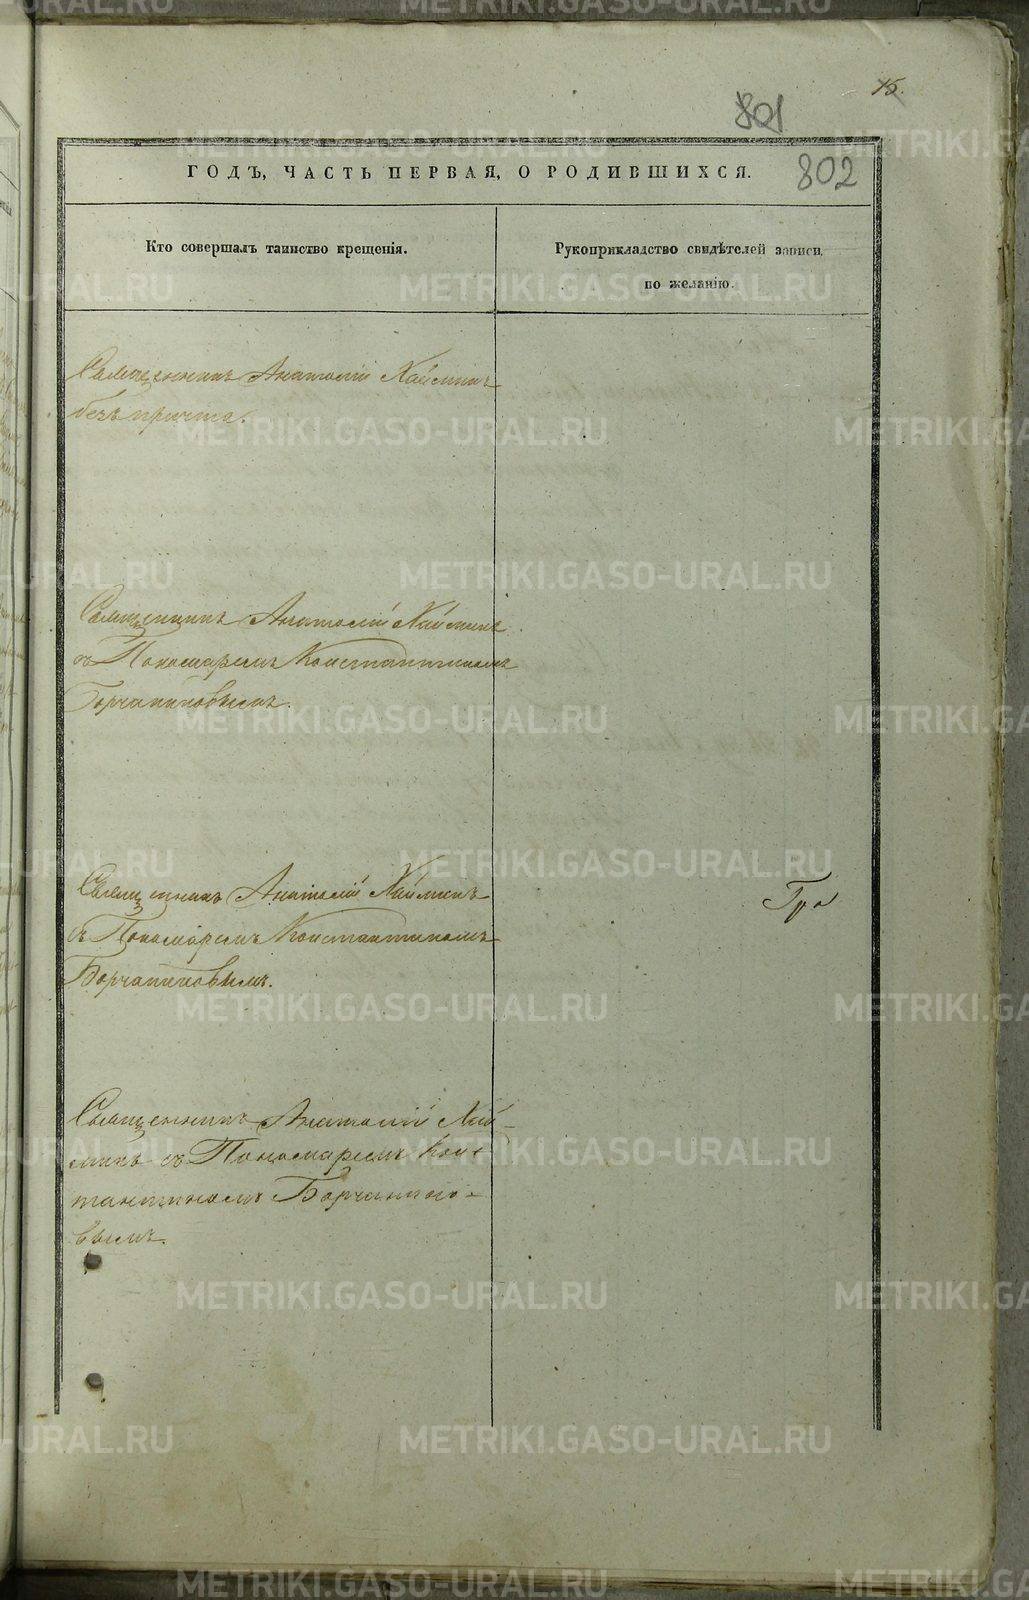 15.
801
802
ГОДЪ, ЧАСТЬ ПЕРВАЯ, О РОДИВШИХСЯ.
Кто совершалъ таинство крещенія.
Рукоприкладство свидѣтелей записи
по желанію.
Священникъ Анатолій Хаймин
безъ причта.
Священникъ Анатолій Хаймин
съ Пономаремъ Константиномъ
Священникъ Анатолій Хайминъ
съ Пономаремъ Константиномъ
Гра
Священникъ Анатолій Хай-
минъ съ Пономаремъ Конс
тантиномъ
вымъ.
METRIKI.GASO-URAL.RU